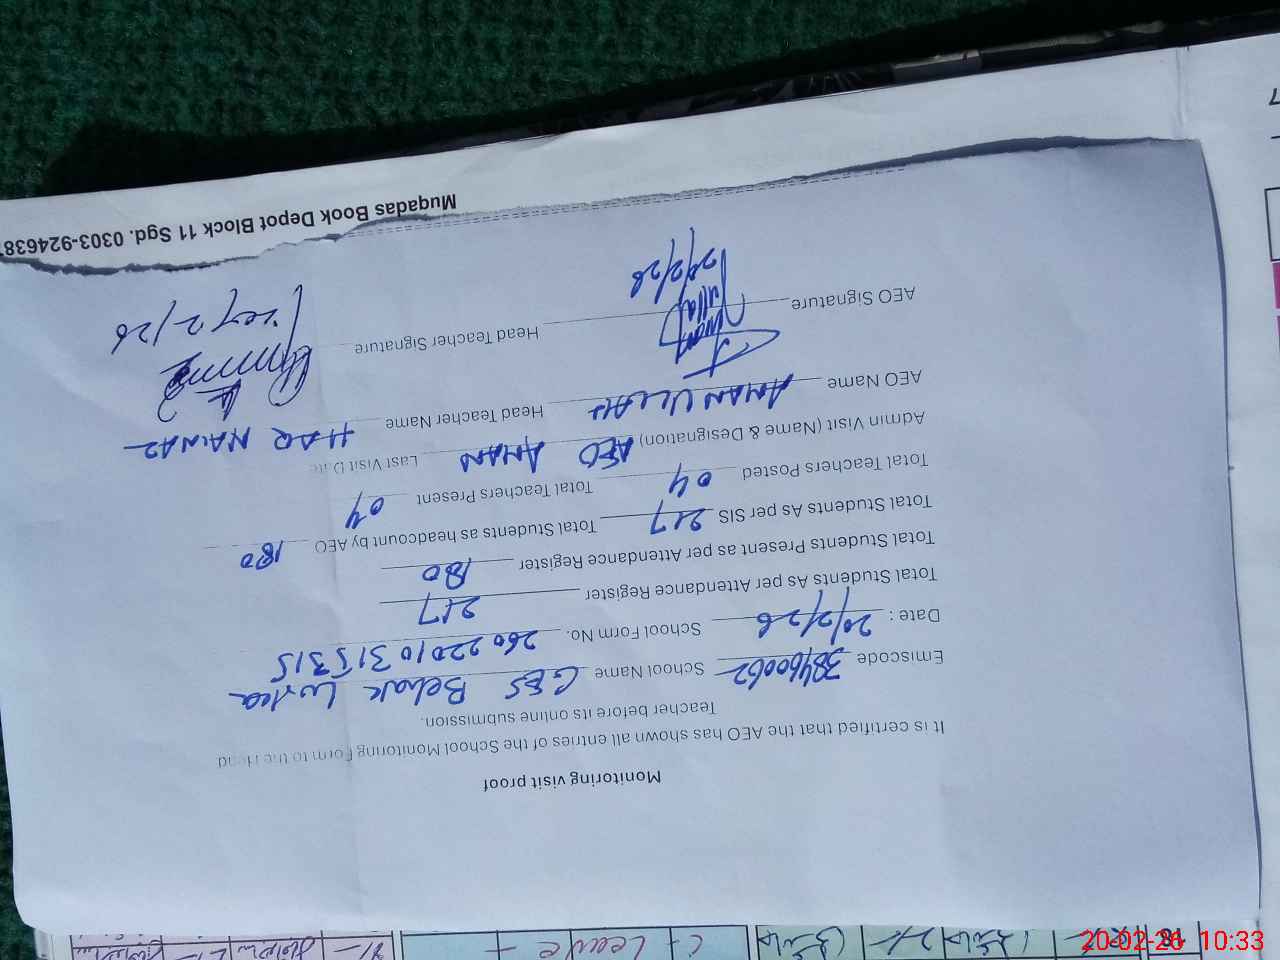 Monitoring visit proof
It is certified that the AEO has shown all entries of the School Monitoring Form to the Head
Teacher before its online submission.
Emiscode 38460062 School Name GES Behak Lurka
Date : 20/2/26 School Form No. 26022010315315
Total Students As per Attendance Register 217
Total Students Present as per Attendance Register 180
Total Students As per SIS 217 Total Students as headcount by AEO 180
Total Teachers Posted 04 Total Teachers Present 04
Admin Visit (Name & Designation) AEO AMAN Last Visit Date
AEO Name AMAN ULLAH Head Teacher Name HAQ NAWAZ
AEO Signature Head Teacher Signature
20/2/26
Muqadas Book Depot Block 11 Sgd. 0303-924638
7
C+ Leave +
20-02-26 10:33